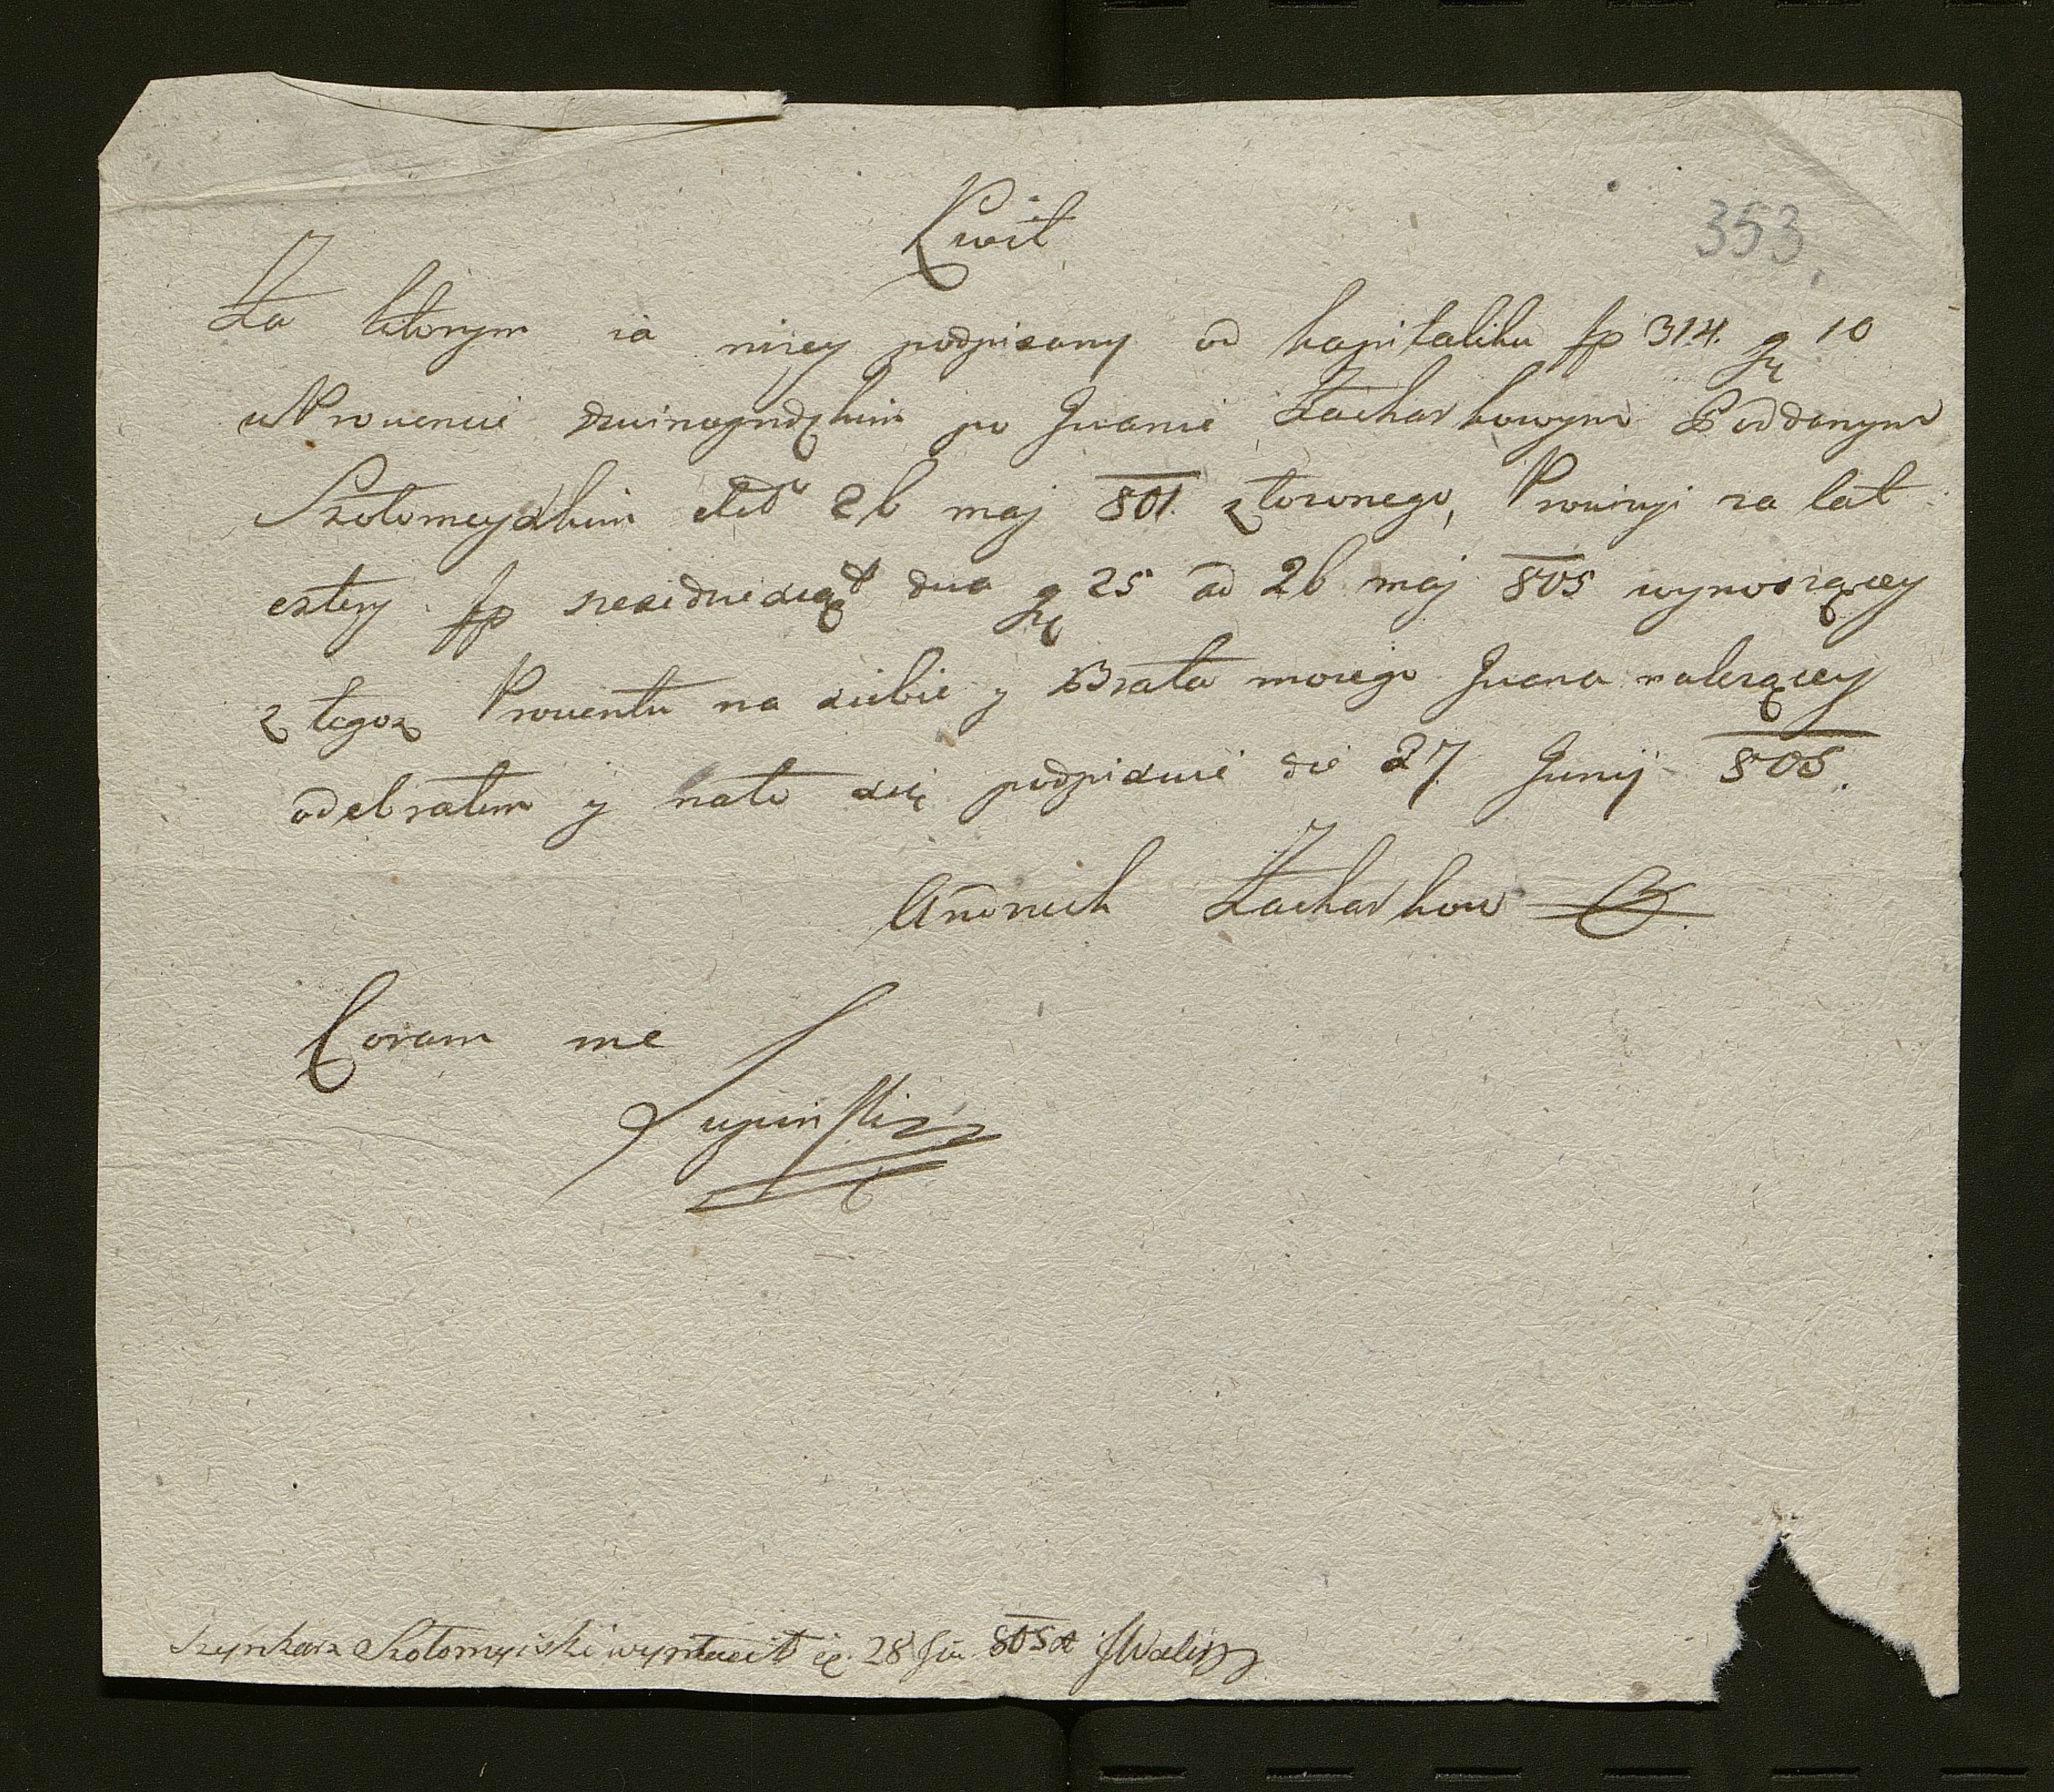 Kwit
353.
Za ktorym ia nizey podpisany od kapitaliku fp 314. gr 10
w Prouencie Dwinogrodzkim po Iwanie Zacharkowym Poddanym
Szołomeyskim 26 maj 801. złozonego, Prowizyi za lat
cztery fp szesćdziesiąt dwa gr 25 ad 26 maj 805 wynoszącey
z tegoz Prouentu na siebie y Brata moiego Iwana nalezącey
odebrałem y nato się podpisuie die 27 Junij 805.
Andruch Zacharkow
Coram me
Łupinski
Szynkarz Szołomyiski wypłacił 28 Ju 805